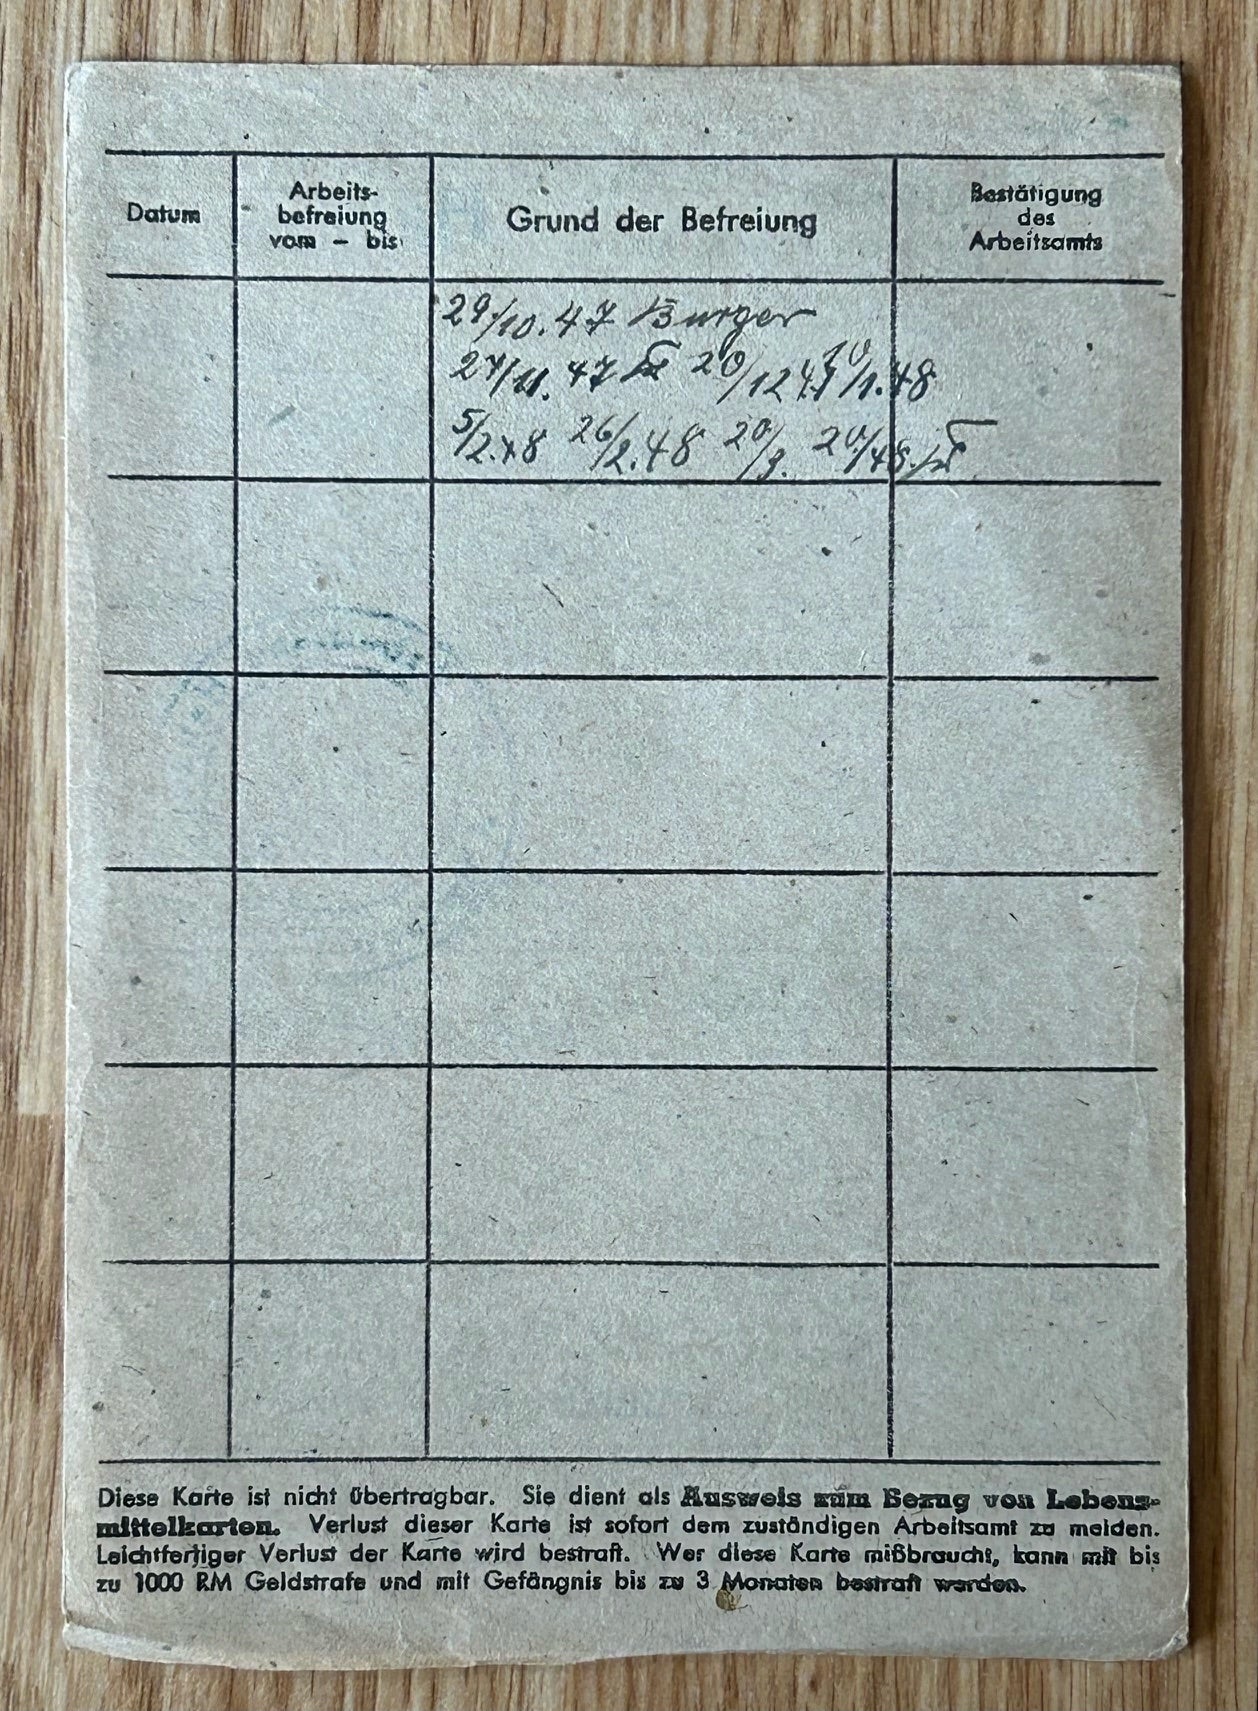 Datum
Arbeits-
befreiung
vom – bis
Grund der Befreiung
Bestätigung
des
Arbeitsamts
29/10. 47 Burger
27/11. 47 20/12 47 /1.48
5/2.48 26/2.48 20/3. 20/48.
Diese Karte ist nicht übertragbar. Sie dient als Ausweis zum Bezug von Lebens-
mittelkarten. Verlust dieser Karte ist sofort dem zuständigen Arbeitsamt zu melden.
Leichtfertiger Verlust der Karte wird bestraft. Wer diese Karte mißbraucht, kann mit bis
zu 1000 RM Geldstrafe und mit Gefängnis bis zu 3 Monaten bestraft werden.